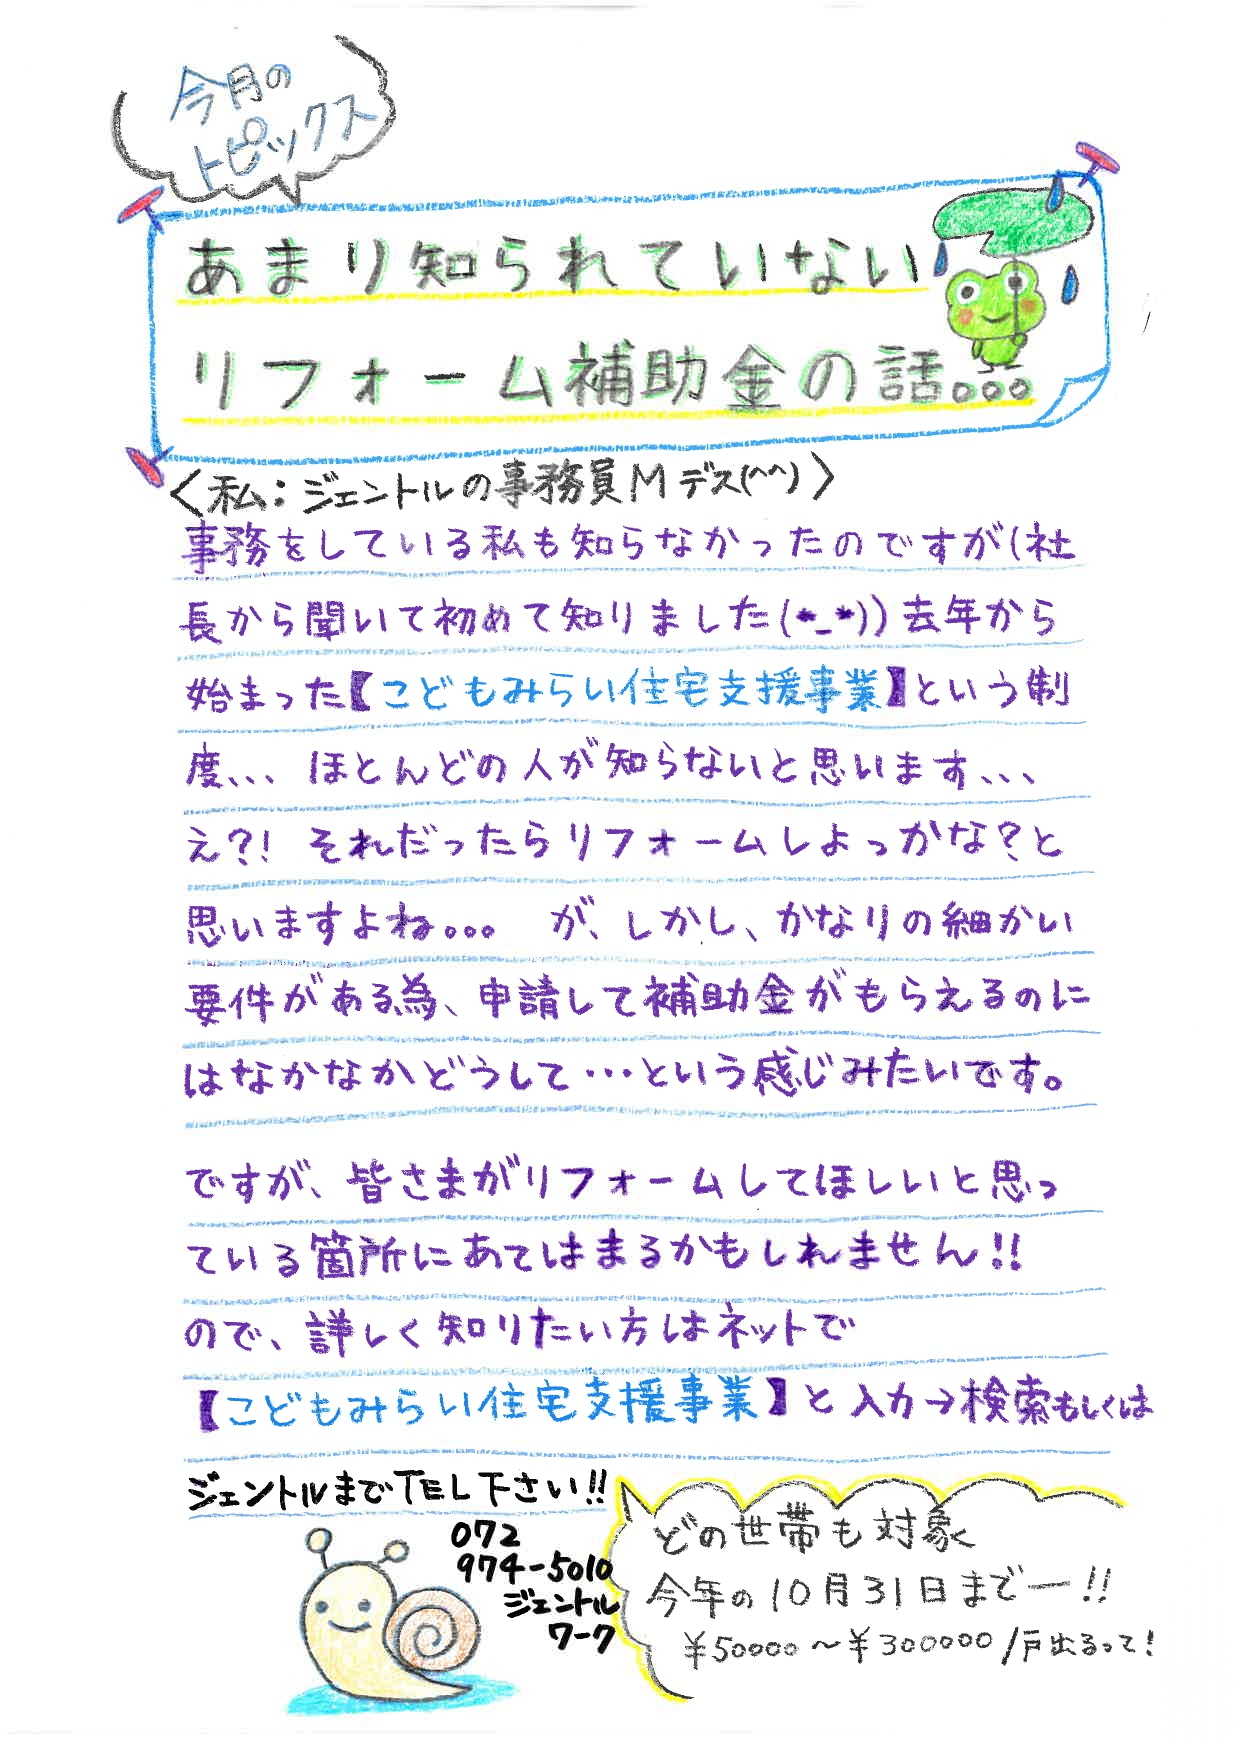 今月の
トピックス
あまり知られていない
リフォーム補助金の話。。。
〈私：ジェントルの事務員Mデス(^^)〉
事務をしている私も知らなかったのですが(社
長から聞いて初めて知りました(*_*))去年から
始まった【こどもみらい住宅支援事業】という制
度、、、ほとんどの人が知らないと思います、、、
え?! それだったらリフォームしよっかな?と
思いますよね。。。 が、しかし、かなりの細かい
要件がある為、申請して補助金がもらえるのに
はなかなかどうして…という感じみたいです。
ですが、皆さまがリフォームしてほしいと思っ
ている箇所にあてはまるかもしれません!!
ので、詳しく知りたい方はネットで
【こどもみらい住宅支援事業】と入力→検索もしくは
ジェントルまでTEL下さい!!
072
974-5010
ジェントル
ワーク
どの世帯も対象
今年の10月31日までー!!
¥50000〜¥300000/戸出るって!